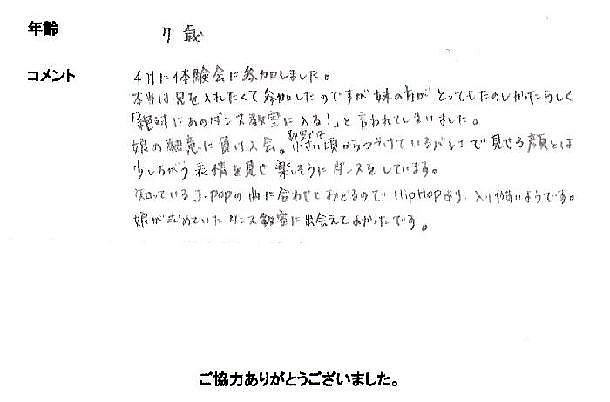 年齢 7歳
コメント 4月に体験会に参加しました。
本当は兄を入れたくて参加したのですが妹の方がとってもたのしかったらしく
「絶対にあのダンス教室に入る!」と言われてしまいました。
娘の熱意に負け入会。小さい頃からつづけているバレエで見せる顔とは
少しちがう表情を見せ楽しそうにダンスをしています。
知っているJ-POPの曲に合わせておどるのでHipHopより入りやすいようです。
娘がもとめていたダンス教室に出会えてよかったです。
ご協力ありがとうございました。